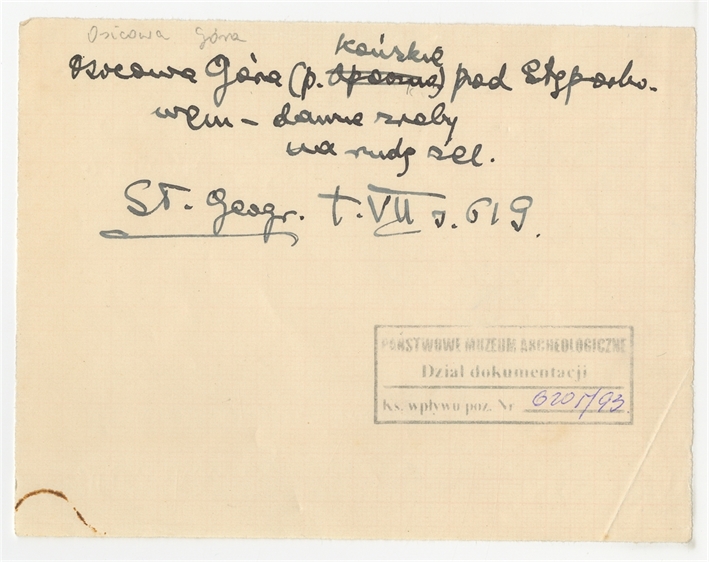 Osicowa Góra
Końskie
Osicowa Góra (p. Opoczno) pod Stąporko-
wem – dawne zroby
na rudę żel.
Sł. Geogr. t. VII s. 619.
PAŃSTWOWE MUZEUM ARCHEOLOGICZNE
Dział dokumentacji
Ks. wpływu poz. Nr 6201/93